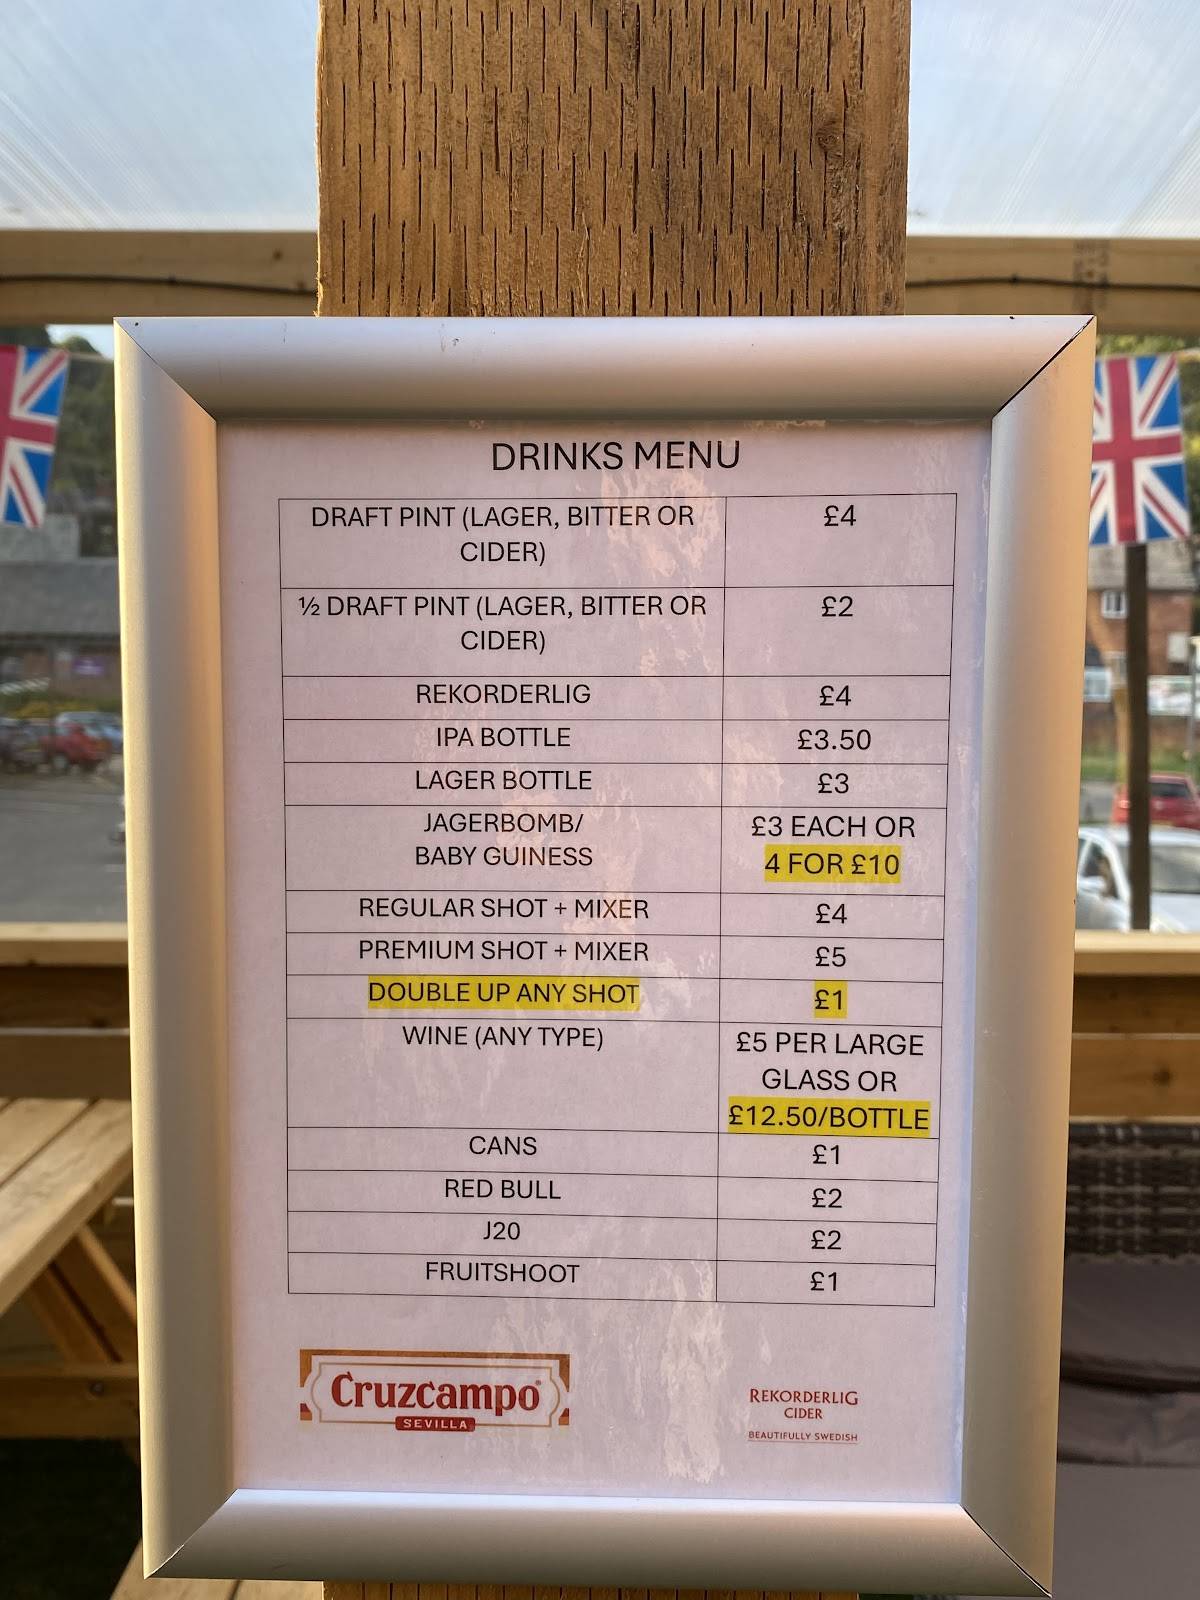 DRINKS MENU
DRAFT PINT (LAGER, BITTER OR
CIDER)
£4
½ DRAFT PINT (LAGER, BITTER OR
CIDER)
£2
REKORDERLIG
£4
IPA BOTTLE
£3.50
LAGER BOTTLE
£3
JAGERBOMB/
BABY GUINESS
£3 EACH OR
4 FOR £10
REGULAR SHOT + MIXER
£4
PREMIUM SHOT + MIXER
£5
DOUBLE UP ANY SHOT
£1
WINE (ANY TYPE)
£5 PER LARGE
GLASS OR
£12.50/BOTTLE
CANS
£1
RED BULL
£2
J20
£2
FRUITSHOOT
£1
Cruzcampo®
SEVILLA
REKORDERLIG
CIDER
BEAUTIFULLY SWEDISH